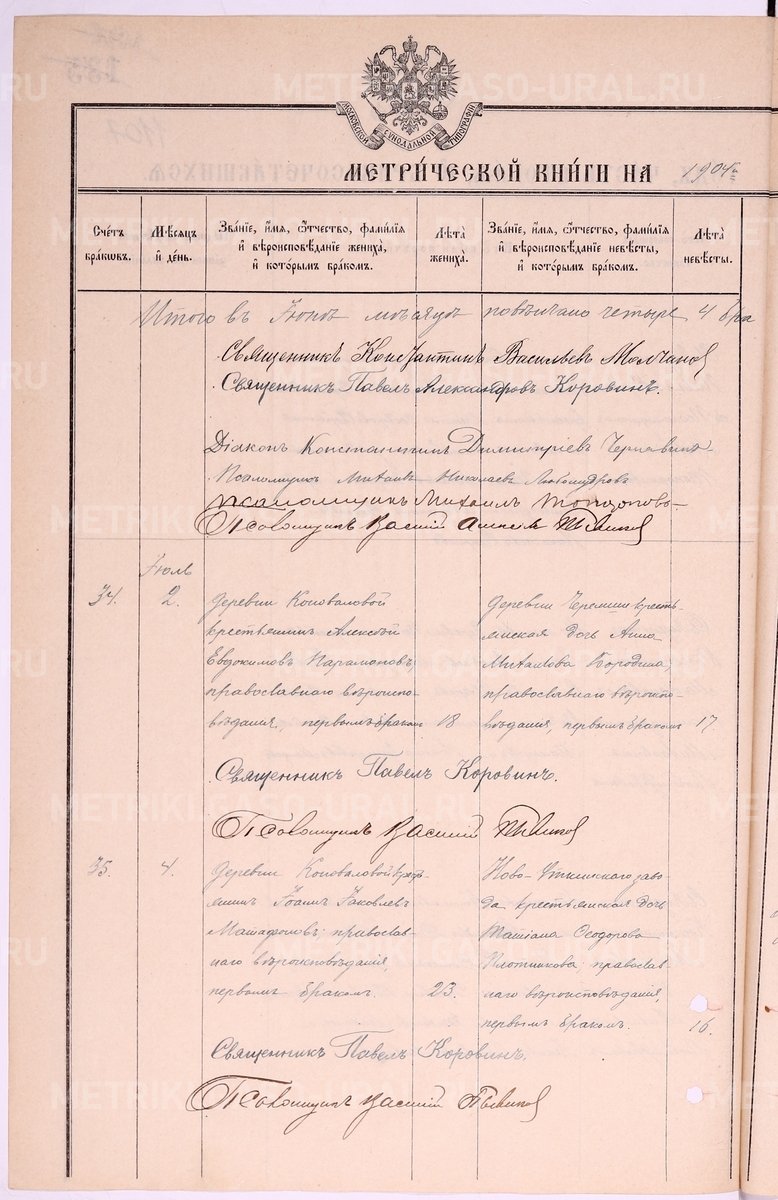 МОСКОВСКОЙ СУНОДАЛЬНОЙ ТИПОГРАФІИ
МЕТРИ́ЧЕСКОЙ КНИ́ГИ НА 1904 г.
Счётъ бра́кωвъ.
Мѣ́сяцъ и҆ де́нь.
Зва́нїе, и҆́мя, ѻ҆́тчество, фами́лїя и҆ вѣроисповѣ́данїе жениха̀, и҆ кото́рымъ бра́комъ.
Лѣ́та жениха̀.
Зва́нїе, и҆́мя, ѻ҆́тчество, фами́лїя и҆ вѣроисповѣ́данїе невѣ́сты, и҆ кото́рымъ бра́комъ.
Лѣ́та невѣ́сты.
Итого въ Іюнѣ мѣсяцѣ повѣнчано четыре 4 бра
Священникъ Константинъ Васильевъ Молчанов
Священникъ Павелъ Александровъ Коровинъ.
Діаконъ Константинъ Димитріевъ
Псаломщикъ Михаилъ Николаевъ Любомудровъ
Псаломщикъ Михаилъ Топорковъ
Псаломщикъ Василій
Іюль
34.
2.
Деревни Коноваловой
крестьянинъ Алексѣй
Евдокимовъ Парамоновъ,
православнаго вѣроиспо-
вѣданія, первымъ бракомъ
18
Деревни Черемши кресть-
янская дочь Анна
Михаилова Бородина,
православнаго вѣроиспо-
вѣданія, первымъ бракомъ
17
Священникъ Павелъ Коровинъ.
Псаломщикъ Василій
35.
4.
Деревни Коноваловой крест-
янинъ Іоаннъ Іаковлевъ
православ-
наго вѣроисповѣданія,
первымъ бракомъ.
23.
Ново-Уткинскаго заво
да крестьянская дочь
Татіана Ѳеодорова
Плотникова, православ-
наго вѣроисповѣданія,
первымъ бракомъ.
16.
Священникъ Павелъ Коровинъ.
Псаломщикъ Василій
METRIKI.GASO-URAL.RU